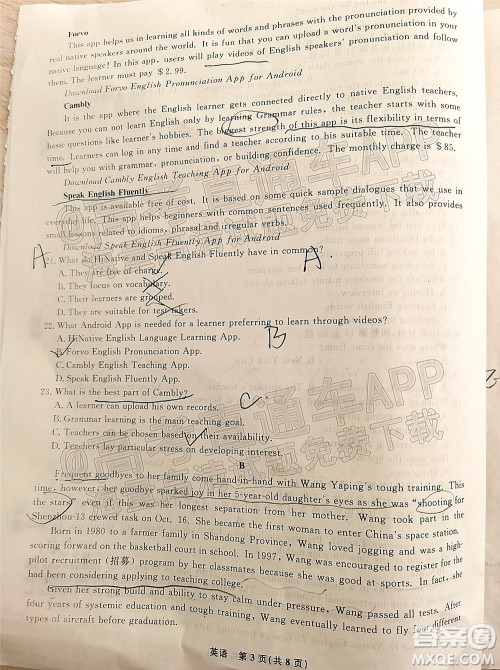 Forvo
This app helps us in learning all kinds of words and phrases with the pronunciation provided by
real native speakers around the world. It is fun that you can upload a word's pronunciation in your
native language! In this app, users will play videos of English speakers' pronunciation and follow
them. The learner must pay $ 2.99.
Download Forvo English Pronunciation App for Android
Cambly
It is the app where the English learner gets connected directly to native English teachers.
Because you can not learn English only by learning Grammar rules, the teacher starts with some
basic questions like learner's hobbies. The biggest strength of this app is its flexibility in terms of
time. Learners can log in any time and find a teacher according to his suitable time. The teacher
will help you with grammar, pronunciation, or building confidence. The monthly charge is $ 85.
Download Cambly English Teaching App for Android
Speak English Fluently
This app is available free of cost. It is based on some quick sample dialogues that we use in
everyday life. This app helps beginners with common sentences used frequently. It also provides
small lessons related to idioms, phrasal and irregular verbs.
Download Speak English Fluently App for Android
A
21. What do HiNative and Speak English Fluently have in common?
A.
A. They are free of charge.
B. They focus on vocabulary.
C. Their learners are grouped.
D. They are suitable for test-takers.
22. What Android App is needed for a learner preferring to learn through videos?
B
A. HiNative English Language Learning App.
B. Forvo English Pronunciation App.
C. Cambly English Teaching App.
D. Speak English Fluently App.
23. What is the best part of Cambly?
C.
A. A learner can upload his own records.
B. Grammar learning is the main teaching goal.
C. Teachers can be chosen based on their availability.
D. Teachers lay particular stress on developing interest.
B
Frequent goodbyes to her family come hand-in-hand with Wang Yaping's tough training. This
time, however, her goodbye sparked joy in her 5-year-old daughter's eyes as she was "shooting for
the stars" even if this was her longest separation from her mother. Wang took part in the
Shenzhou-13 crewed task on Oct. 16. She became the first woman to enter China's space station.
Born in 1980 to a farmer family in Shandong Province, Wang loved jogging and was a high-
scoring forward on the basketball court in school. In 1997, Wang was encouraged to register for the
pilot recruitment (招募) program by her classmates because she was good at sports. In fact, she
had been considering applying to teaching college.
Given her strong build and ability to stay calm under pressure, Wang passed all tests. After
four years of extensive and tough training, Wang eventually learned to fly four different
types of aircraft before graduation.
英语 第 3 页(共 8 页)
答案圈
MXQE.COM